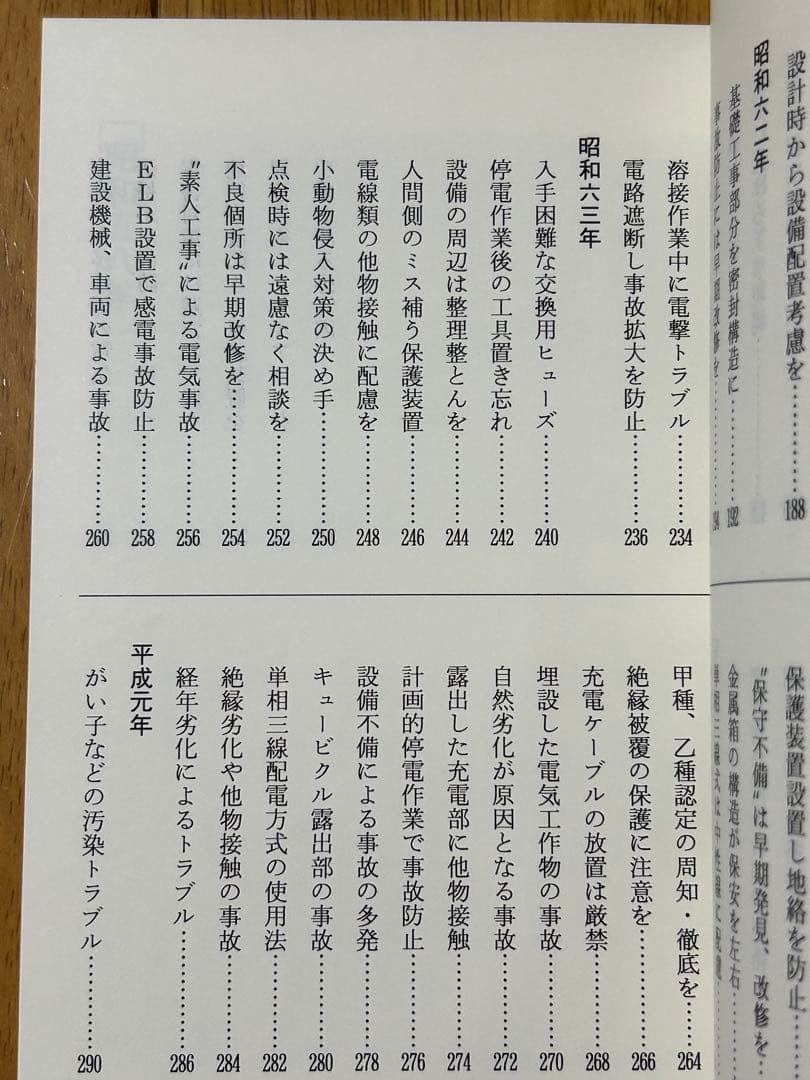 設計時から設備配置考慮を…………188
昭和六二年
基礎工事部分を密封構造に…………192
事故防止には早期改修を…………194
保護装置設置し地絡を防止
〝保守不備〟は早期発見、改修を
金属箱の構造が保安を左右
溶接作業中に電撃トラブル…………234
電路遮断し事故拡大を防止…………236
昭和六三年
入手困難な交換用ヒューズ…………240
停電作業後の工具置き忘れ…………242
設備の周辺は整理整とんを…………244
人間側のミス補う保護装置…………246
電線類の他物接触に配慮を…………248
小動物侵入対策の決め手…………250
点検時には遠慮なく相談を…………252
不良個所は早期改修を…………254
〝素人工事〟による電気事故…………256
ELB設置で感電事故防止…………258
建設機械、車両による事故…………260
甲種、乙種認定の周知・徹底を…………264
絶縁被覆の保護に注意を…………266
充電ケーブルの放置は厳禁…………268
埋設した電気工作物の事故…………270
自然劣化が原因となる事故…………272
露出した充電部に他物接触…………274
計画的停電作業で事故防止…………276
設備不備による事故の多発…………278
キュービクル露出部の事故…………280
単相三線配電方式の使用法…………282
絶縁劣化や他物接触の事故…………284
経年劣化によるトラブル…………286
平成元年
がい子などの汚染トラブル…………290